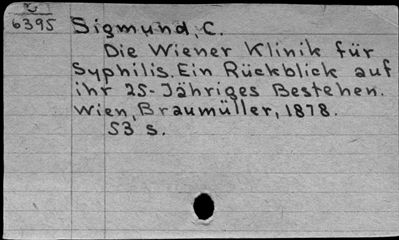 6395 Sigmund, C.
Die Wiener Klinik für
Syphilis. Ein Rückblick auf
ihr 25-Jähriges Bestehen.
Wien, Braumüller, 1878.
53 s.